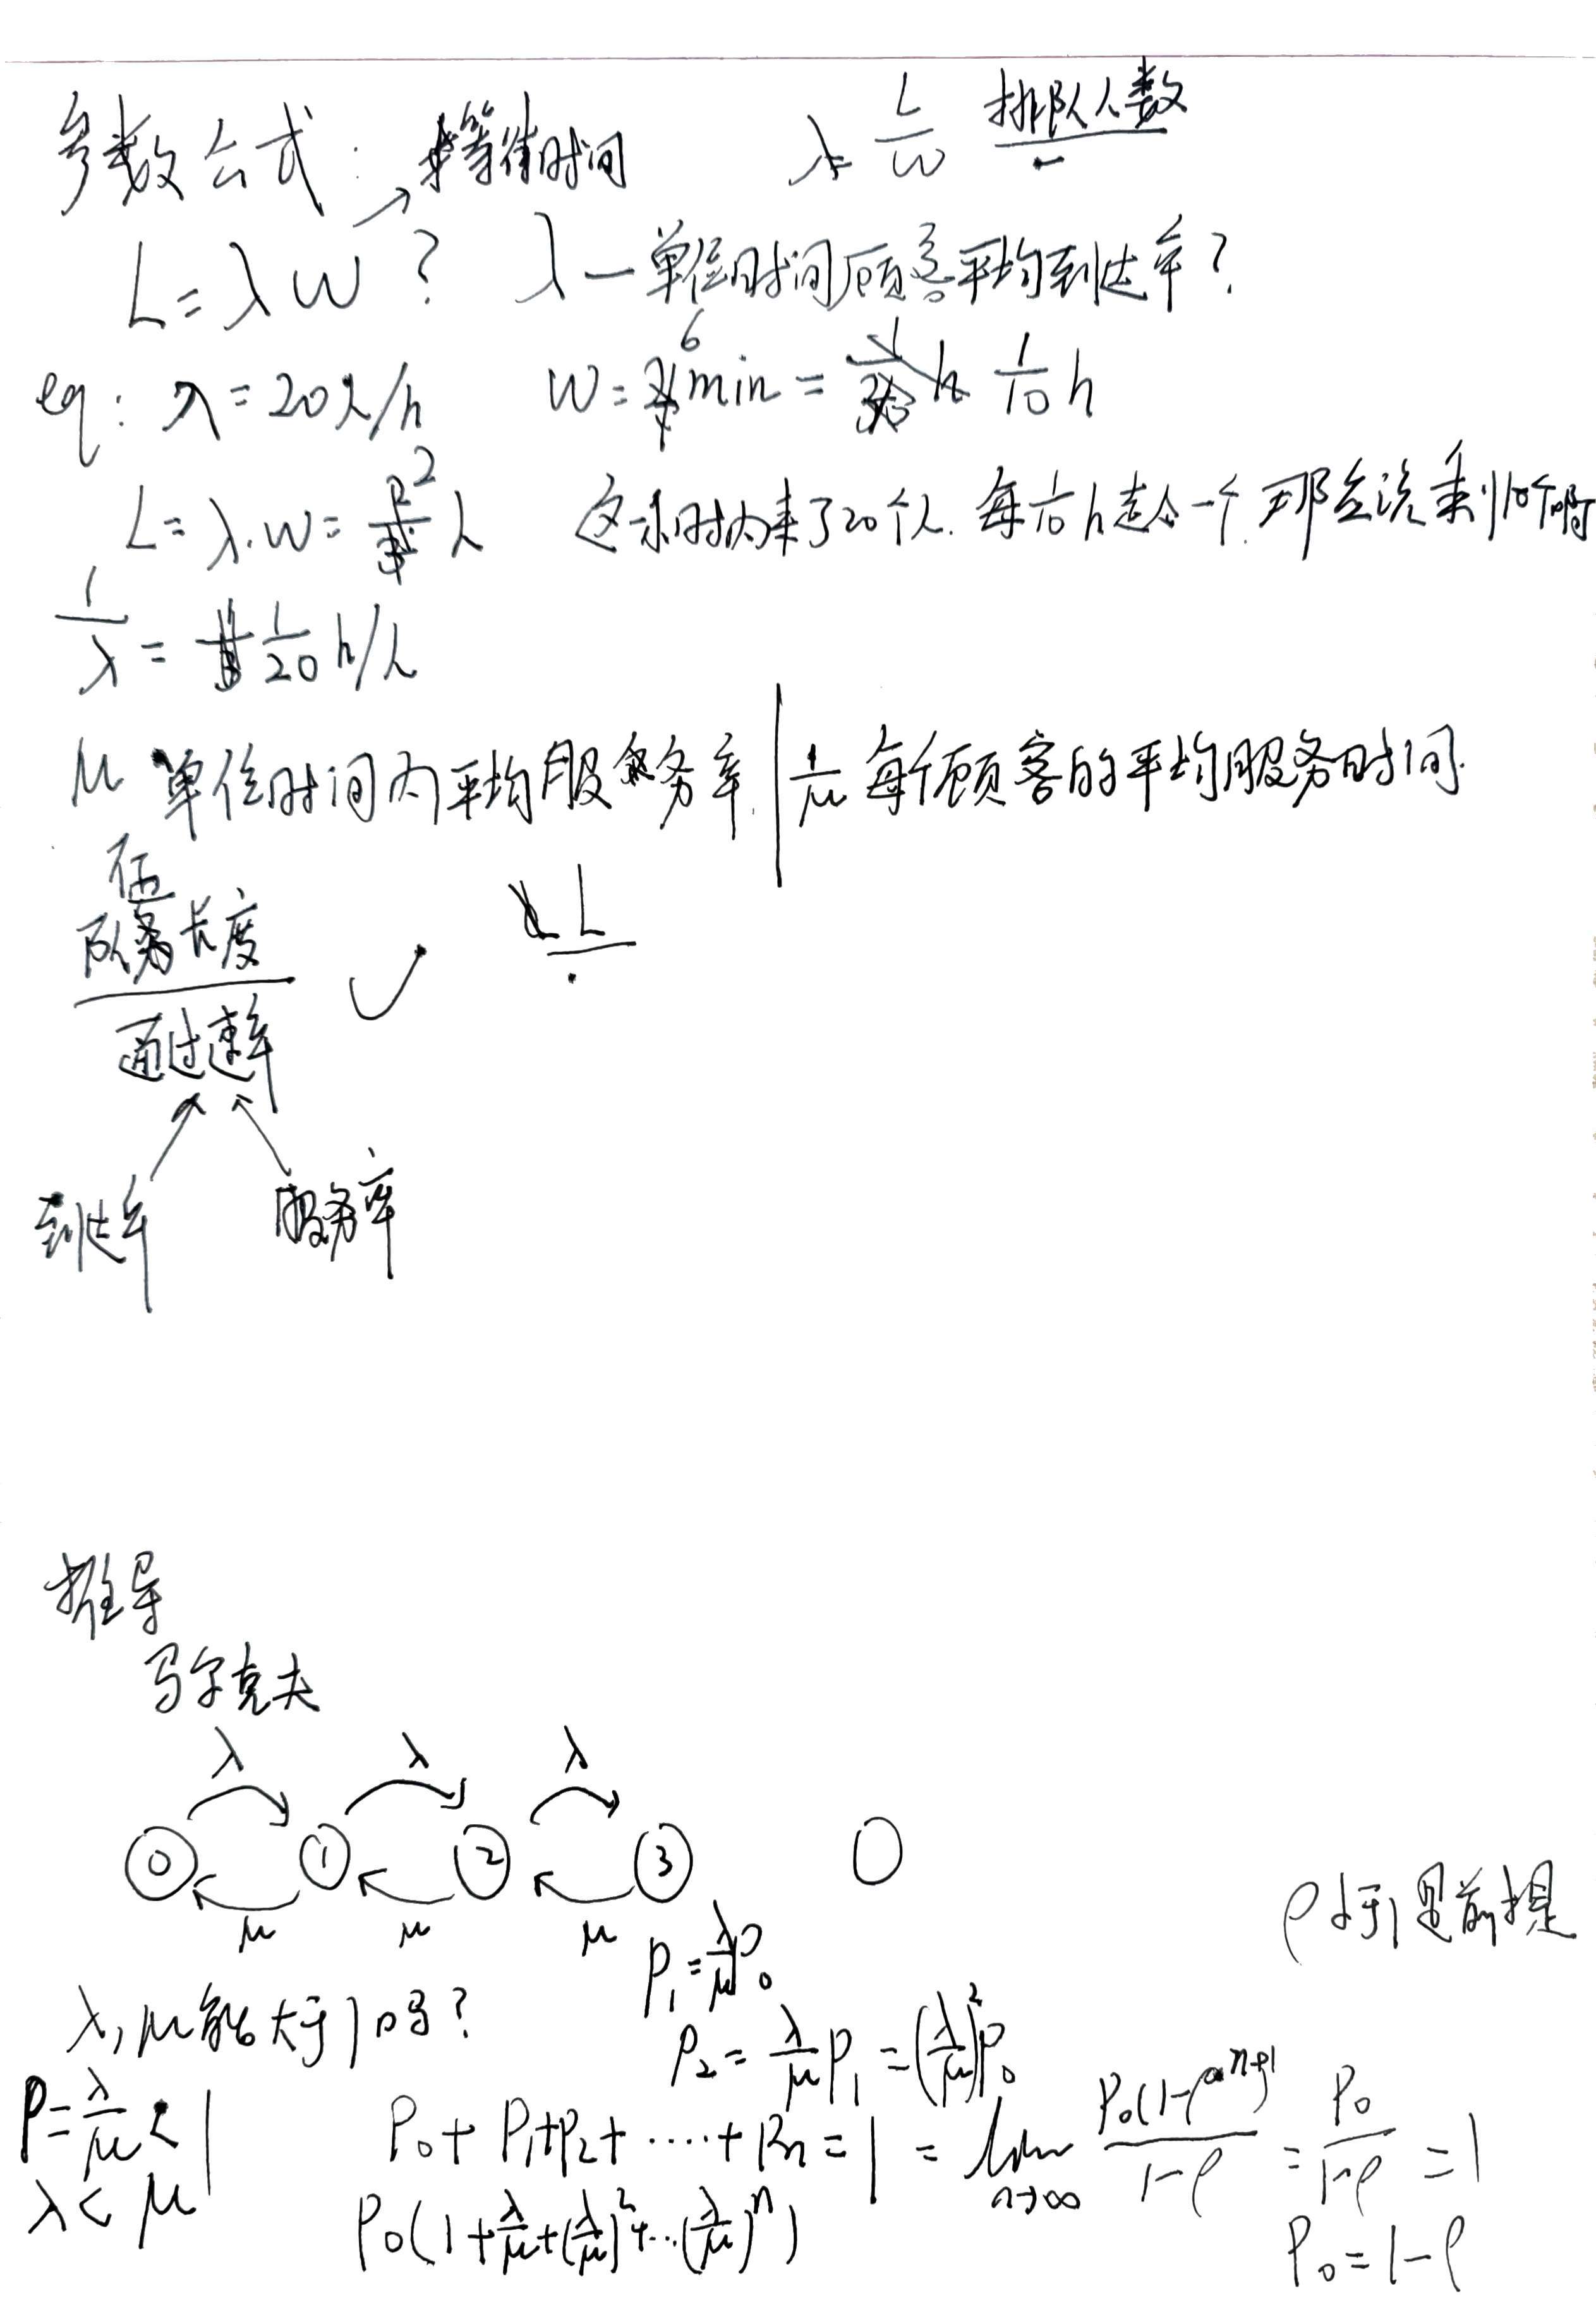 参数公式: 等待时间 λ= L/W 排队人数
L=λW ? λ—单位时间顾客平均到达率?
eg: λ=20人/h W=6min = 1/10 h
L=λ.W=2人 这一小时内来了20个人. 每1/10 h走一个. 那应该剩10个啊
1/λ = 1/20 h/人
μ 单位时间内平均服务率. | 1/μ 每个顾客的平均服务时间.
队伍长度 L
通过速率
到达率 服务率
推导
马尔克夫
λ λ λ
0 1 2 3
μ μ μ
ρ小于1是前提
P₁=λ/μ P₀
λ,μ能大于1吗?
P₂= λ/μ P₁ =(λ/μ)²P₀
ρ=λ/μ<1
P₀+P₁+P₂+·····+Pn=1 = lim n→∞ P₀(1-ρⁿ⁺¹)/1-ρ = P₀/1-ρ =1
λ<μ
P₀(1+λ/μ+(λ/μ)²+...(λ/μ)ⁿ)
P₀=1-ρ